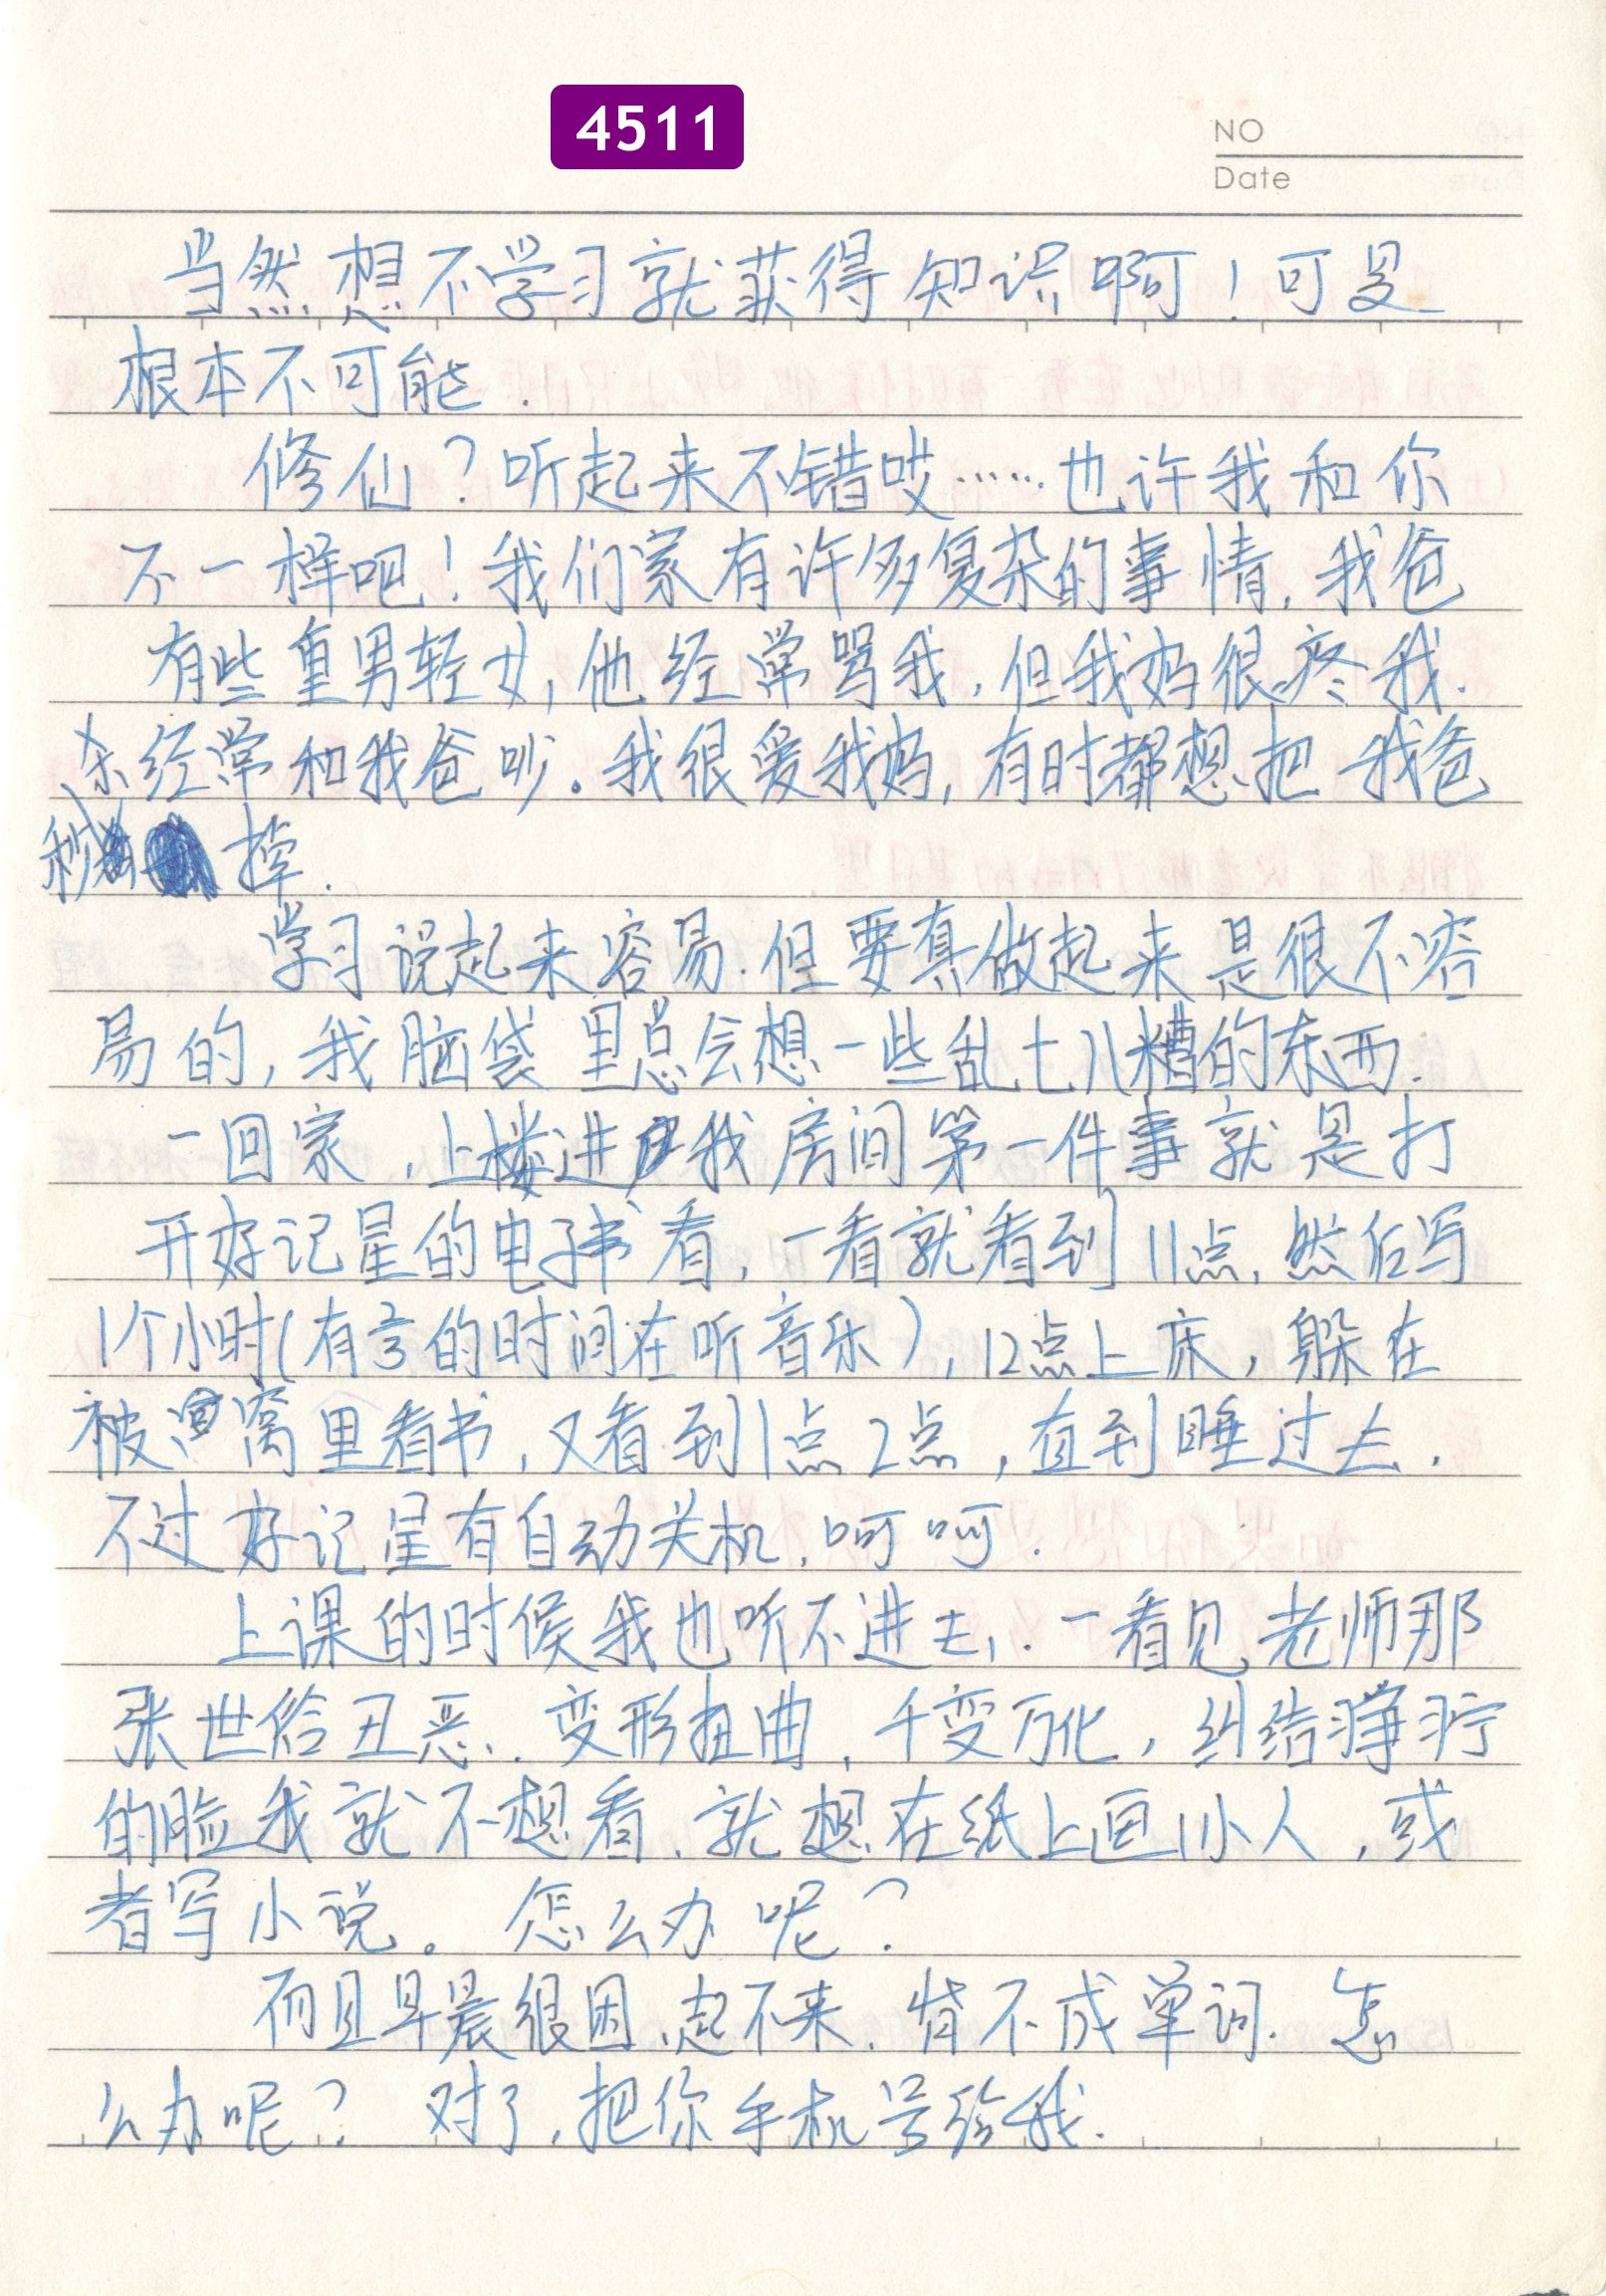 4511
NO
Date
当然想不学习就获得知识啊！可是
根本不可能．
修仙？听起来不错哎……也许我和你
不一样吧！我们家有许多复杂的事情，我爸
有些重男轻女，他经常骂我，但我妈很疼我．
经常和我爸吵。我很爱我妈，有时都想把我爸
秒掉．
学习说起来容易．但要真做起来是很不容
易的，我脑袋里总会想一些乱七八糟的东西．
一回家，上楼进我房间第一件事就是打
开好记星的电子书看，一看就看到11点，然后写
1个小时（有多的时间在听音乐），12点上床，躲在
被窝里看书，又看到1点2点，直到睡过去．
不过好记星有自动关机，呵呵．
上课的时候我也听不进去，．一看见老师那
张世俗丑恶．变形扭曲，千变万化，纠结狰狞
的脸我就不想看．就想在纸上画小人，或
者写小说。怎么办呢？
而且早晨很困，起不来．背不成单词．怎
么办呢？对了，把你手机号给我．